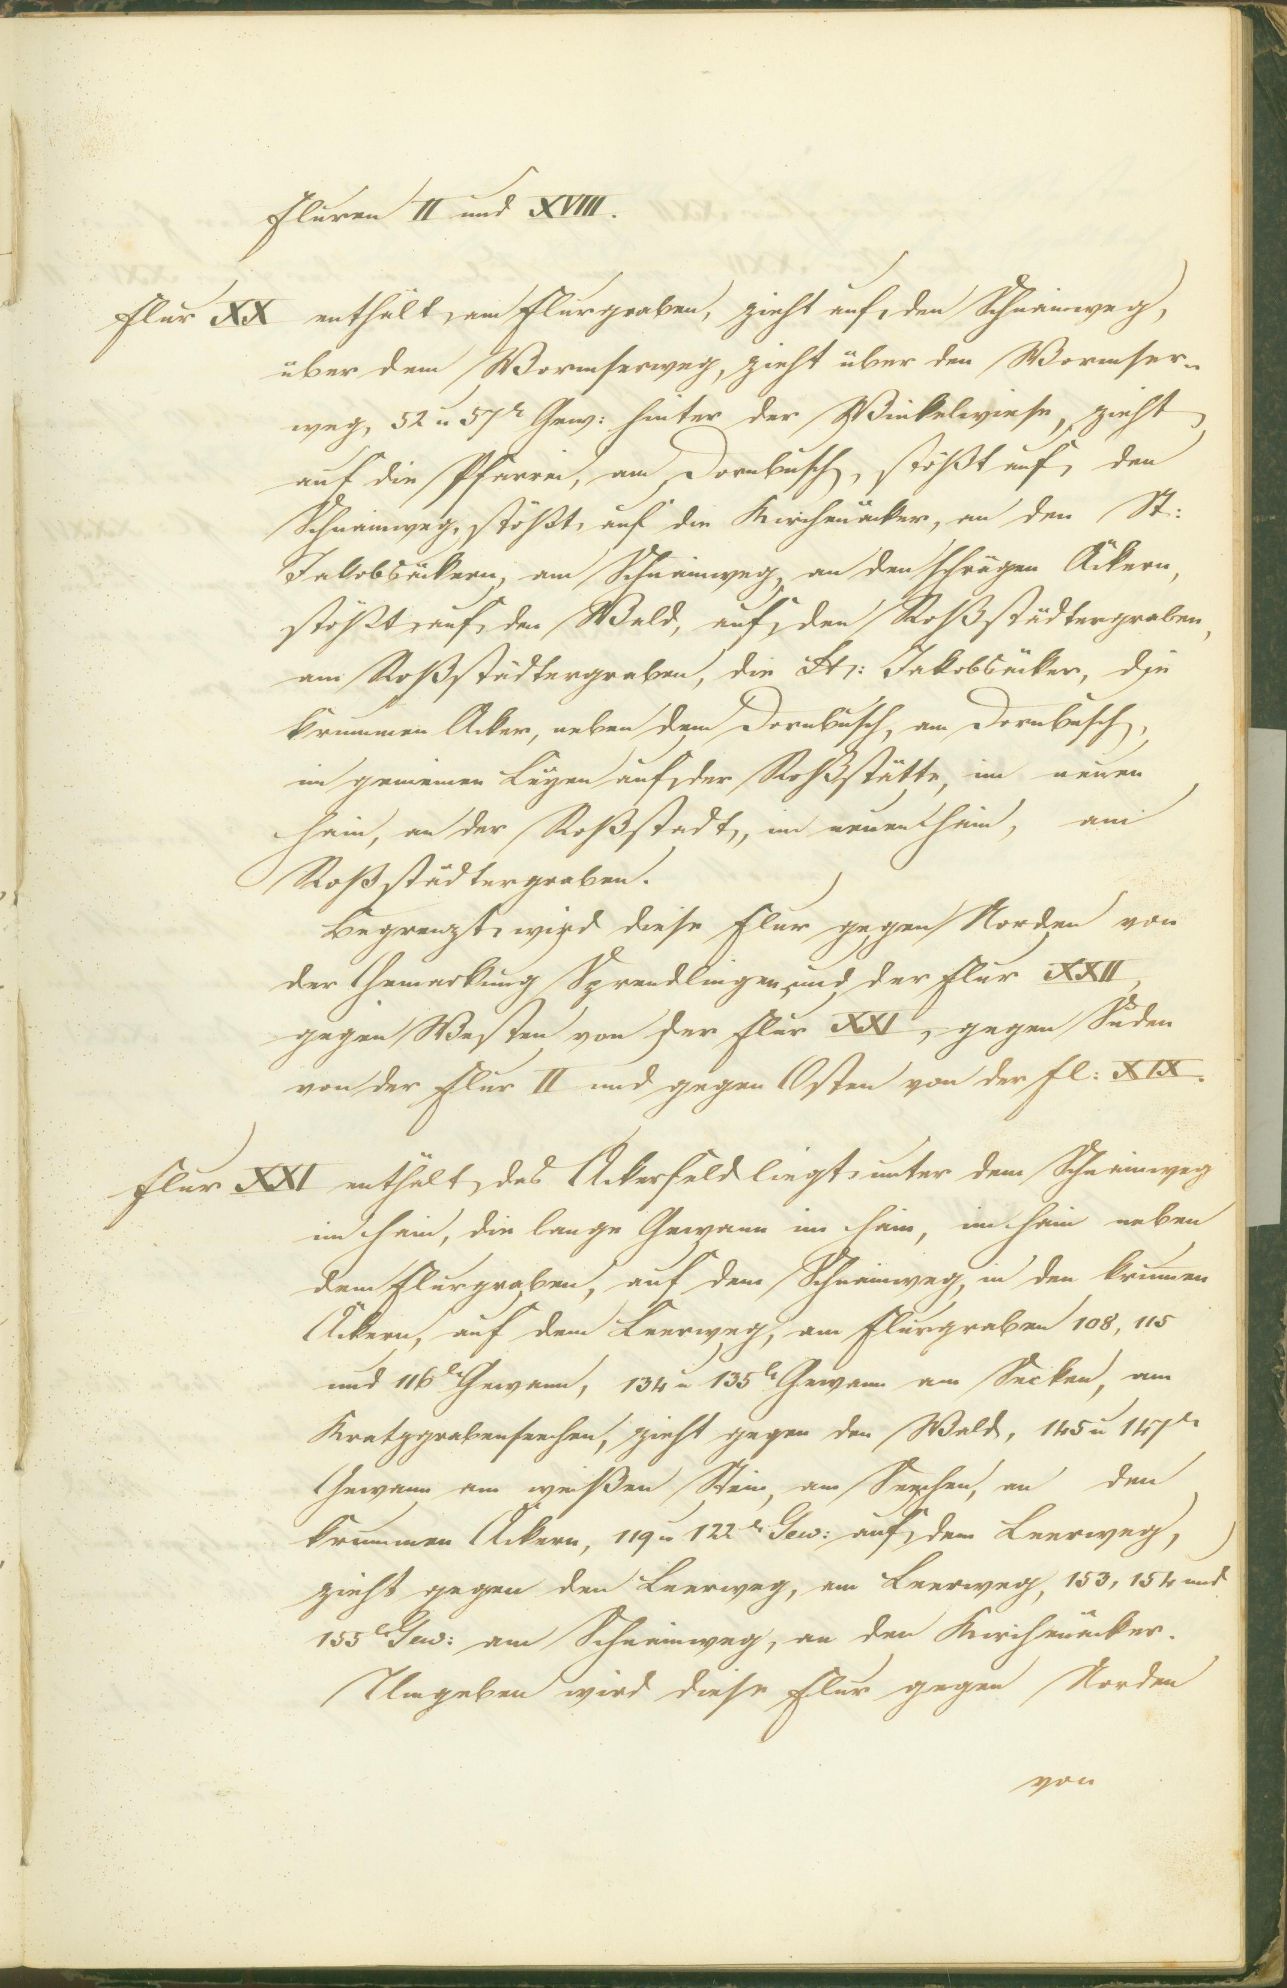 Fluren II und XVIII.
Flur XX enthält, am Flurgraben, zieht auf den Schneinweg,
über dem Wormserweg, zieht über den Wormser-
weg, 52 u 57te Gew: hinter der Winkelwiese, zieht
auf die Pfarrei, am Dornbusch, stößt auf den
Schneinweg, stößt auf die Kirchenäcker, an den St:
Jakobsäckern, am Schneinweg, an den schrägen Äckern,
stößt auf den Wald, auf den Roßstädtergraben,
am Roßstädtergraben, die St: Jakobsäcker, die
krummen Äcker, neben dem Dornbusch, am Dornbusch,
im gemeinen auf der Roßstätte, im neuen
Hain, an der Roßstadt, im neuen Hain, am
Roßstädtergraben.
Begrenzt wird diese Flur gegen Norden von
der Gemarkung Sprendlingen und der Flur XXII,
gegen Westen von der Flur XXI, gegen Süden
von der Flur II und gegen Osten von der Fl: XIX.
Flur XXI enthält, das Ackerfeld liegt unter dem Schneinweg
im Hain, die lange Gewann im Hain, im Hain neben
dem Flurgraben, auf dem Schneinweg, in den krummen
Äckern, auf dem Leerweg, am Flurgraben 108, 115
und 116te Gewann, 134 u 135te Gewann am Secken, am
zieht gegen den Wald, 145 u 147te
Gewann am weißen Stein, am Seechen, an den
krummen Äckern, 119 u 122te Gew: auf dem Leerweg,
zieht gegen den Leerweg, am Leerweg, 153, 154 und
155te Gew: am Schneinweg, an den Kirchenäcker.
Umgeben wird diese Flur gegen Norden
von